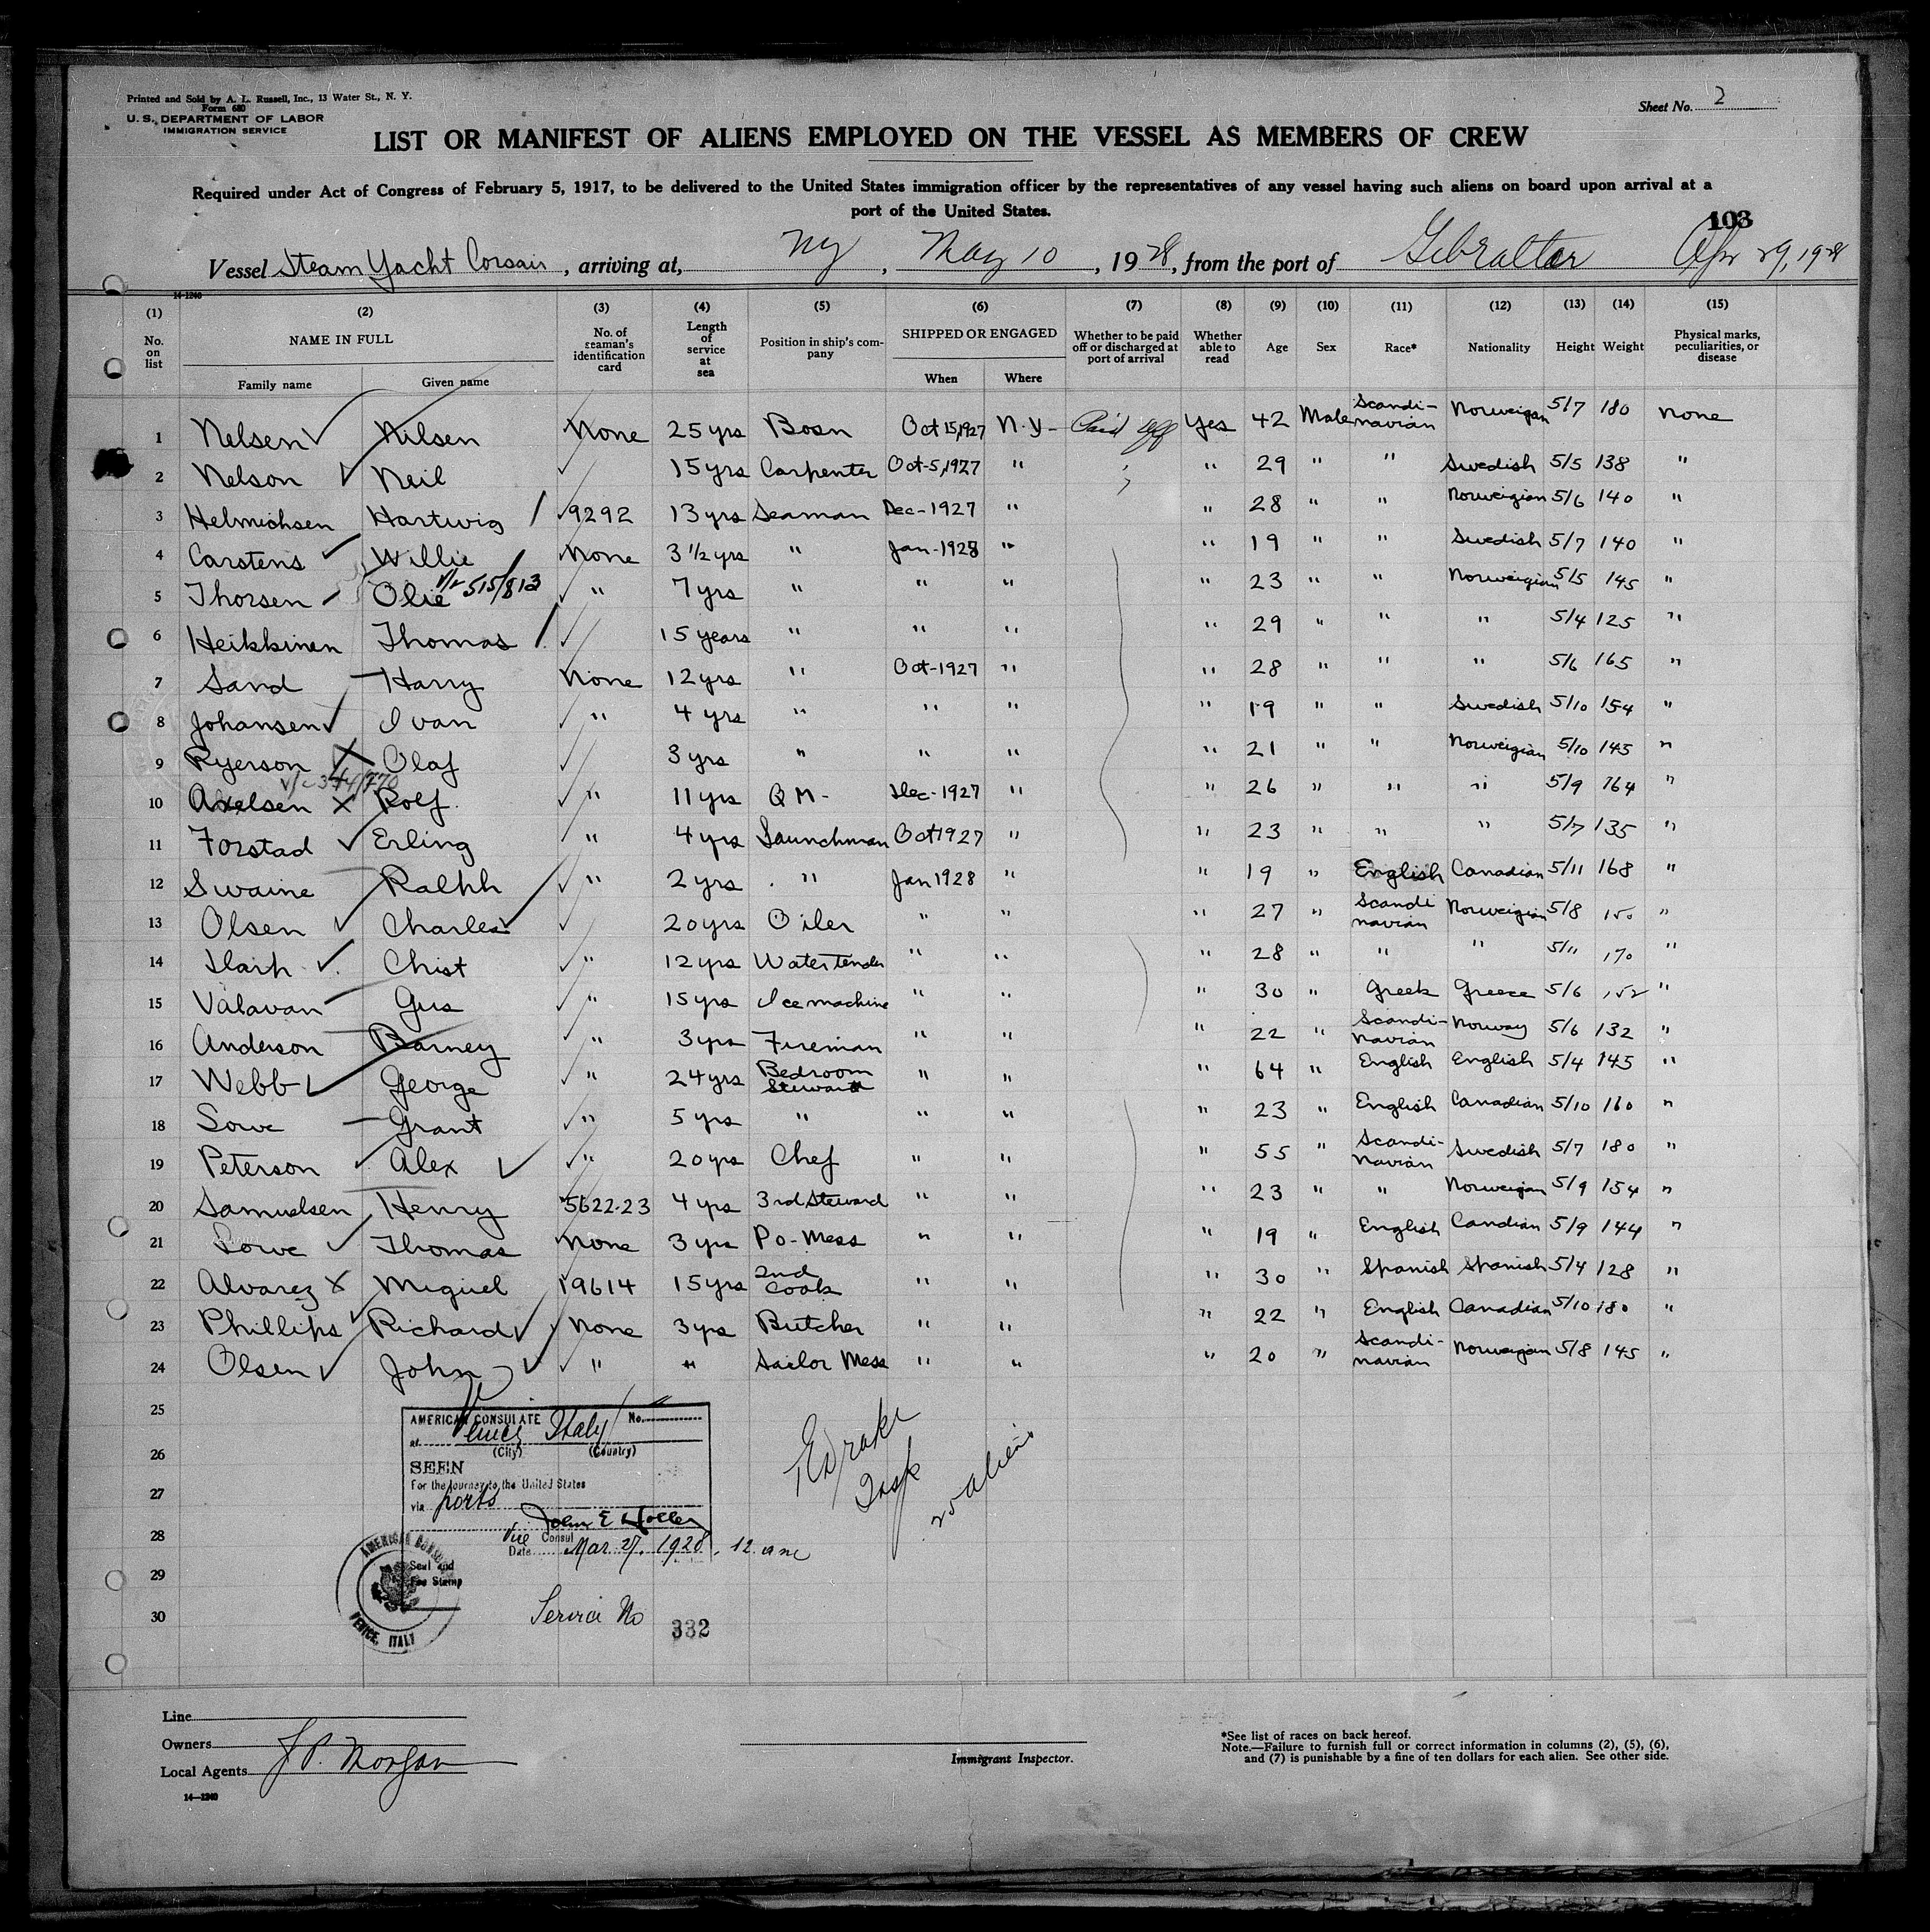 Printed and Sold by A. L. Russell, Inc., 13 Water St., N. Y.
Form 680
U. S. DEPARTMENT OF LABOR
IMMIGRATION SERVICE
Sheet No. 2
LIST OR MANIFEST OF ALIENS EMPLOYED ON THE VESSEL AS MEMBERS OF CREW
Required under Act of Congress of February 5, 1917, to be delivered to the United States immigration officer by the representatives of any vessel having such aliens on board upon arrival at a
port of the United States.
103
Vessel Steam Yacht Corsair, arriving at, NY, May 10, 1928, from the port of Gibraltar Apr 29, 1928
14-1240
(1) (2) (3) (4) (5) (6) (7) (8) (9) (10) (11) (12) (13) (14) (15)
No. on list NAME IN FULL No. of seaman's identification card Length of service at sea Position in ship's company SHIPPED OR ENGAGED Whether to be paid off or discharged at port of arrival Whether able to read Age Sex Race* Nationality Height Weight Physical marks, peculiarities, or disease
Family name Given name When Where
1 Nelsen Nilsen None 25 yrs Bosn Oct 15, 1927 N.Y- Paid off Yes 42 Male Scandi-navian Norweigan 5/7 180 None
2 Nelson Neil 15 yrs Carpenter Oct-5, 1927 " " 29 " " Swedish 5/5 138 "
3 Helmichsen Hartwig 9292 13 yrs Seaman Dec-1927 " " 28 " " Norweigian 5/6 140 "
4 Carstens Willie None 3 1/2 yrs " Jan-1928 " " 19 " " Swedish 5/7 140 "
5 Thorsen Olie V/r 515/813 " 7 yrs " " " " 23 " " Norweigian 5/5 145 "
6 Heikkinen Thomas 15 years " " " " 29 " " " 5/4 125 "
7 Sand Harry None 12 yrs " Oct-1927 " " 28 " " " 5/6 165 "
8 Johansen Ivan " 4 yrs " " " " 19 " " Swedish 5/10 154 "
9 Ryerson Olaf 3 yrs " " " " 21 " " Norweigian 5/10 145 "
10 Axelsen Rolf " 11 yrs QM- Dec-1927 " " 26 " " " 5/9 164 "
11 Forstad Erling " 4 yrs Launchman Oct 1927 " " 23 " " " 5/7 135 "
12 Swaine Ralph " 2 yrs " Jan 1928 " " 19 " English Canadian 5/11 168 "
13 Olsen Charles 20 yrs Oiler " " " 27 " Scandi navian Norweigian 5/8 150 "
14 Chist " 12 yrs Watertender " " " 28 " " " 5/11 170 "
15 Valavan Gus " 15 yrs Ice machine " " " 30 " Greek Greece 5/6 152 "
16 Anderson Barney " 3 yrs Fireman " " " 22 " Scandi-navian Norway 5/6 132 "
17 Webb George " 24 yrs Bedroom Steward " " " 64 " English English 5/4 145 "
18 Lowe Grant " 5 yrs " " " " 23 " English Canadian 5/10 160 "
19 Peterson Alex " 20 yrs Chef " " " 55 " Scandi-navian Swedish 5/7 180 "
20 Samuelsen Henry 5622-23 4 yrs 3rd Steward " " " 23 " " Norweigan 5/9 154 "
21 Lowe Thomas None 3 yrs Po-Mess " " " 19 " English Candian 5/9 144 "
22 Alvarez Miguel 19614 15 yrs 2nd Cook " " " 30 " Spanish Spanish 5/4 128 "
23 Phillips Richard None 3 yrs Butcher " " " 22 " English Canadian 5/10 180 "
24 Olsen John " " Sailor Mess " " " 20 " Scandi-navian Norweigan 5/8 145 "
25
26
27
28
29
30
AMERICAN CONSULATE No.
at Venice Italy
(City) (Country)
SEEN
For the journey to the United States
via ports
Vice Consul
Date Mar. 27, 1928
Seal and
Fee Stamp
AMERICAN CONSULATE
VENICE, ITALY
Service No 332
Insp
20 aliens
Line
Owners
Local Agents J P. Morgan
14—1240
Immigrant Inspector.
*See list of races on back hereof.
Note.—Failure to furnish full or correct information in columns (2), (5), (6),
and (7) is punishable by a fine of ten dollars for each alien. See other side.